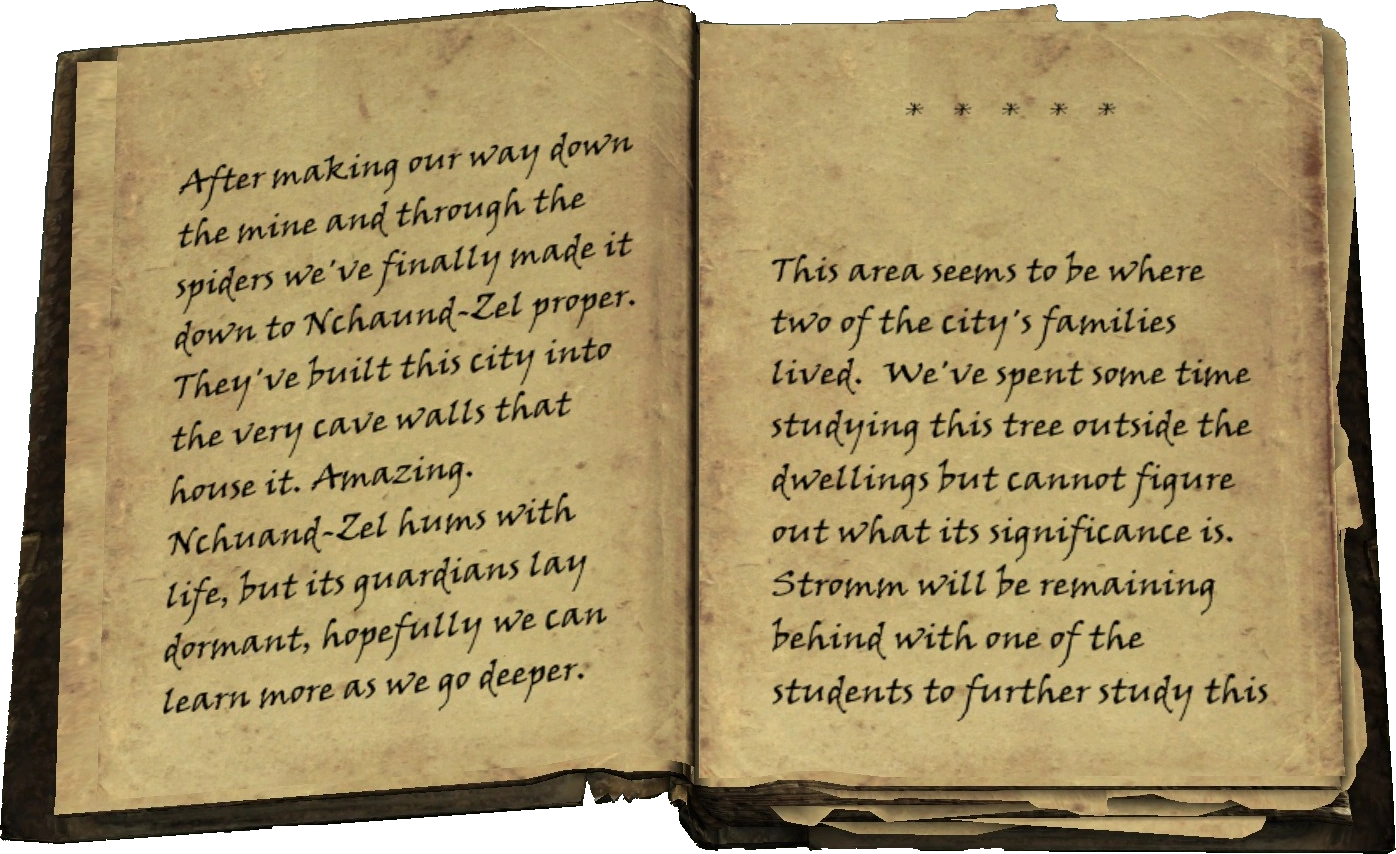 After making our way down
the mine and through the
spiders we've finally made it
down to Nchaund-Zel proper.
They've built this city into
the very cave walls that
house it. Amazing.
Nchuand-Zel hums with
life, but its guardians lay
dormant, hopefully we can
learn more as we go deeper.
* * * * *
This area seems to be where
two of the city's families
lived.  We've spent some time
studying this tree outside the
dwellings but cannot figure
out what its significance is.
Stromm will be remaining
behind with one of the
students to further study this